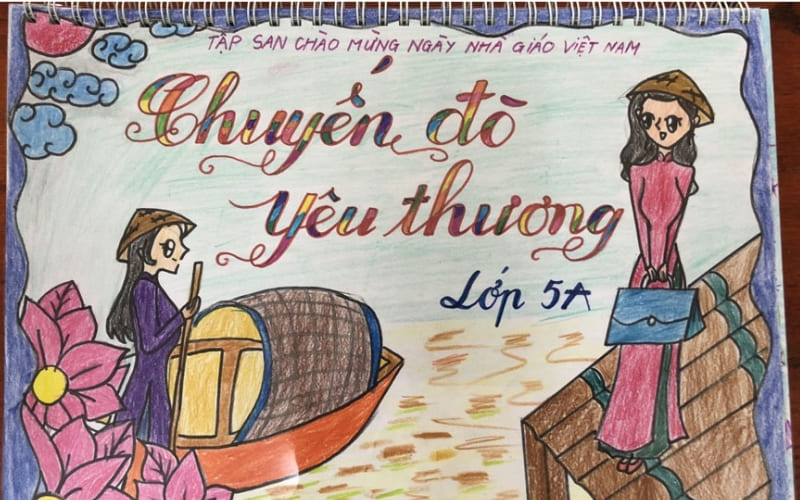 TẬP SAN CHÀO MỪNG NGÀY NHÀ GIÁO VIỆT NAM
Chuyến đò
yêu thương
Lớp 5A